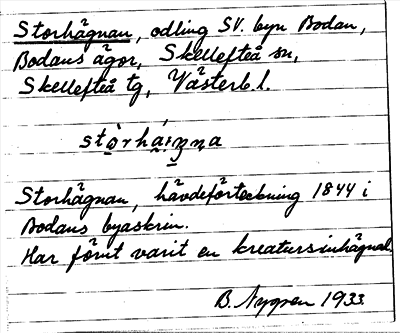 Storhägnan, odling SV. byn Bodan,
Bodans ägor, Skellefteå sn,
Skellefteå tg, Västerb. l.
Storhägnan, hävdeförteckning 1844 i
Bodans byaskrin.
Har förut varit en kreatursinhägnad.
B. Nygren 1933